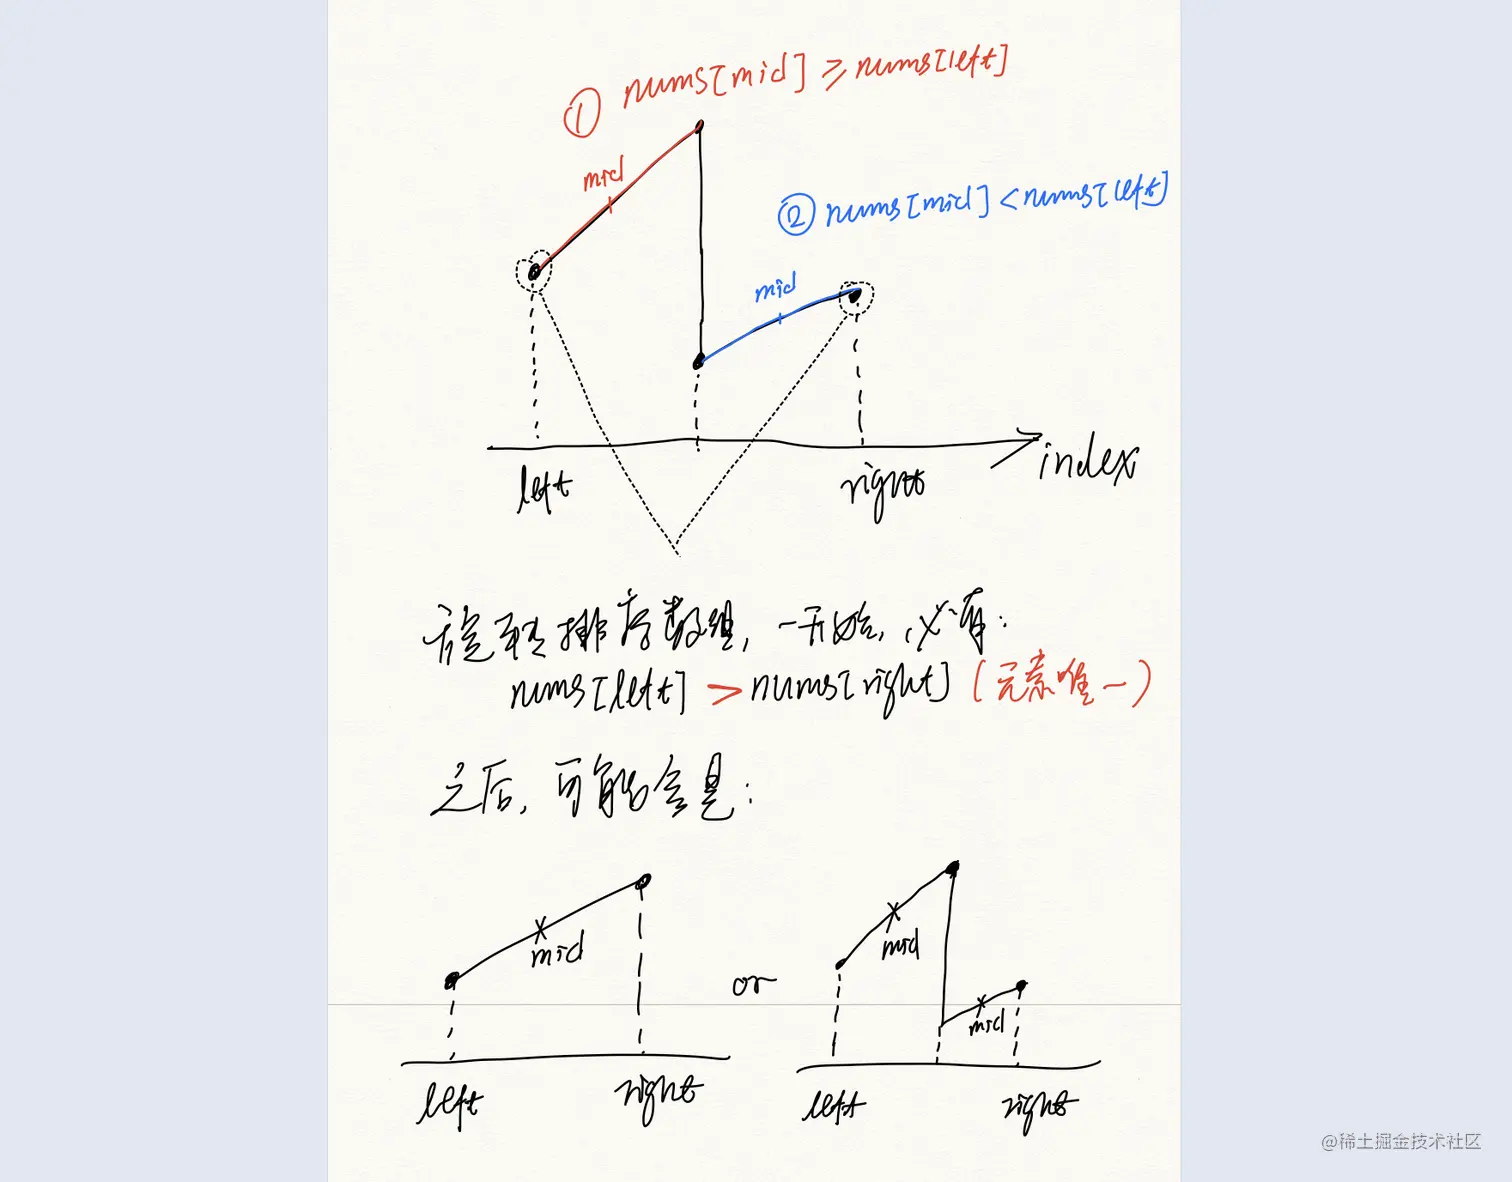 ① nums[mid] ≥ nums[left]
mid
② nums[mid] < nums[left]
mid
index
left
right
旋转排序数组, 一开始, 必有:
nums[left] > nums[right] (元素唯一)
之后, 可能会是:
mid
mid
or
mid
left
right
left
right
@稀土掘金技术社区